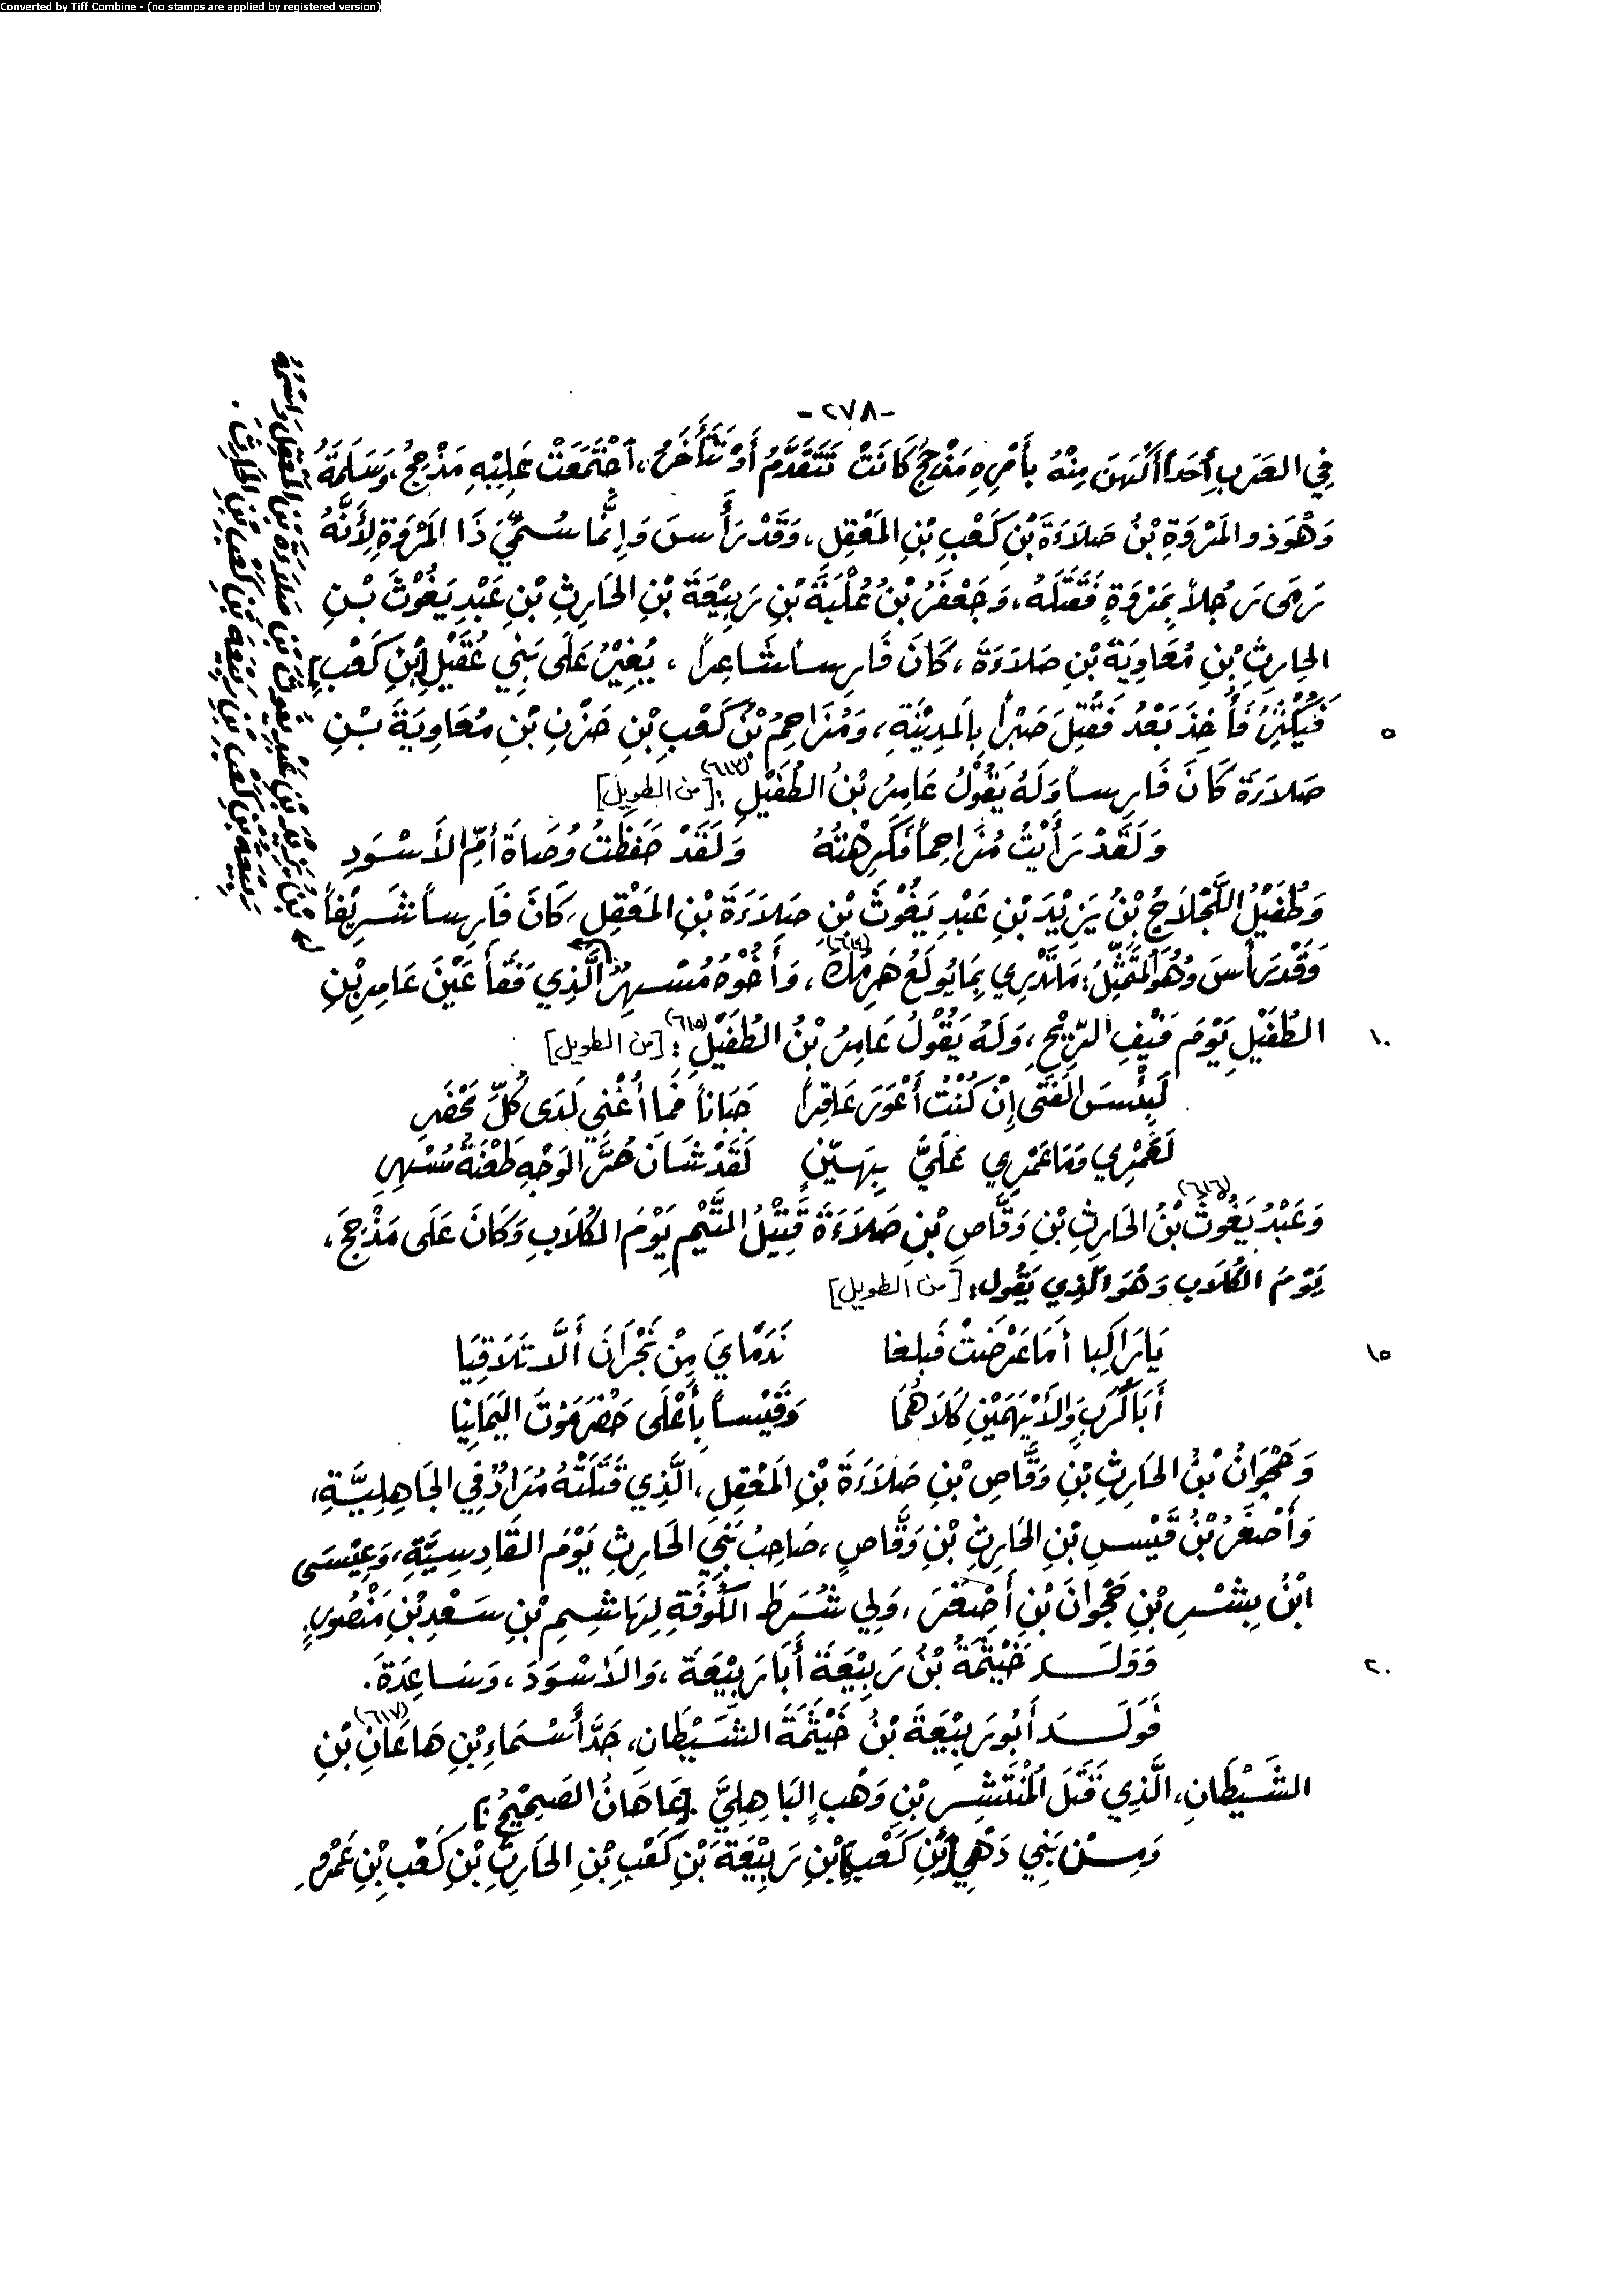 Converted by Tiff Combine - (no stamps are applied by registered version)
-٢٧٨-
فِي العَرَبِ أَحَداً أَكْهَنَ مِنْهُ بِأَمْرِهِ مَذْحِجُ كَانَتْ تَتَقَدَّمُ أَوْ تَتَأَخَّرُ، اجْتَمَعَتْ عَلَيْهِ مَذْحِجُ، وَسَلَمَةُ
وَهُوَ ذو المَرْوَةِ بْنُ صَلاَءَةَ بْنِ كَعْبِ بْنِ المَعْقِلِ، وَقَدْ رَأَسَ وَإِنَّمَا سُمِّيَ ذَا المَرْوَةِ لِأَنَّهُ
رَمَى رَجُلاً بِمَرْوَةٍ فَقَتَلَهُ، وَجَعْفَرُ بْنُ عُلْبَةَ بْنِ رَبِيْعَةَ بْنِ الحَارِثِ بْنِ عَبْدِ يَغُوْثَ بْنِ
الحَارِثِ بْنِ مُعَاوِيَةَ بْنِ صَلاَءَةَ، كَانَ فَارِساً شَاعِراً، يُغِيْرُ عَلَى بَنِي عُقَيْلِ [بْنِ كَعْبٍ]
٥ فَيُكْثِرُ فَأُخِذَ بَعْدُ فَقُتِلَ صَبْراً بِالمَدِيْنَةِ، وَمُزَاحِمُ بْنُ كَعْبِ بْنِ حَزْنِ بْنِ مُعَاوِيَةَ بْنِ
صَلاَءَةَ كَانَ فَارِساً وَلَهُ يَقُوْلُ عَامِرُ بْنُ الطُفَيْلِ (٦١٣): [من الطويل]
وَلَقَدْ رَأَيْتُ مُزَاحِماً فَكَرِهْتُهُ وَلَقَدْ حَفِظْتُ وُصَاةَ أُمِّ الأَسْوَدِ
وَطُفَيْلُ اللَّجْلَاجُ بْنُ يَزِيْدَ بْنِ عَبْدِ يَغُوْثَ بْنِ صَلاَءَةَ بْنِ المَعْقِلِ، كَانَ فَارِساً شَرِيْفاً
وَقَدْ رَأَسَ وَهُوَ المُتَمَثِّلُ: مَا تَدْرِي بِمَا يُولَعُ هَرِمُكَ (٦١٤)، وَأَخُوْهُ مُسْهِرٌ الَّذِي فَقَأَ عَيْنَ عَامِرِ بْنِ
١٠ الطُفَيْلِ يَوْمَ فَيْفِ الرِّيْحِ، وَلَهُ يَقُوْلُ عَامِرُ بْنُ الطُفَيْلِ (٦١٥): [من الطويل]
لَبِئْسَ الفَتَى إِنْ كُنْتُ أَعْوَرَ عَاقِراً جَبَاناً فَمَا أُغْنِي لَدَى كُلِّ مَحْضَرِ
لَعَمْرِي وَمَا عَمْرِي عَلَيَّ بِهَيِّنٍ لَقَدْ شَانَ حُرَّ الوَجْهِ طَعْنَةُ مُسْهِرِ
وَعَبْدُ يَغُوثَ (٦١٦) بْنُ الحَارِثِ بْنِ وَقَّاصِ بْنِ صَلاَءَةَ قَتِيْلُ التَّيْمِ يَوْمَ الكُلَابِ وَكَانَ عَلَى مَذْحِجَ،
يَوْمَ الكُلَابِ وَهُوَ الَّذِي يَقُول: [من الطويل]
١٥ يَا رَاكِبا أَمَا عَرَضْتَ فَبلغا نَدَمَايَ مِنْ نَجْرَانَ أَلَّا تَلَاقِيَا
أَبَا كَرِبٍ وَالأَيْهَمَيْنِ كِلَاهُمَا وَقَيْساً بِأَعْلَى حَضْرَمَوْتَ اليَمَانِيا
وَجَحْوَانُ بْنُ الحَارِثِ بْنِ وَقَّاصِ بْنِ صَلاَءَةَ بْنِ المَعْقِلِ، الَّذِي قَتَلَتْهُ مُرَادُ فِي الجَاهِلِيَّةِ،
وَأَصْفَرُ بْنُ قَيْسِ بْنِ الحَارِثِ بْنِ وَقَّاصٍ، صَاحِبُ بَنِي الحَارِثِ يَوْمَ القَادِسِيَّةِ، وَعِيْسَى
ابْنُ بِشْرِ بْنِ جَحْوَانَ بْنِ أَصْفَرَ، وَلِي شُرَطَ الكُوفَةِ لِهَاشِمِ بْنِ سَعْدِ بْنِ مَنْصُورٍ.
٢٠ وَوَلَـــد خَيْثَمَةُ بْنُ رَبِيْعَةَ أَبَا رَبِيْعَةَ، وَالأَسْوَدَ، وَسَاعِدَةَ.
فَوَلَـــدَ أَبُو رَبِيْعَةَ بْنُ خَيْثَمَةَ الشَّيْطَانِ، جَدَّ أَسْمَاءِ بْنِ هَاعَانِ (٦١٧) بْنِ
الشَّيْطَانِ، الَّذِي قَتَلَ المُنْتَشِر بْنِ وَهْبٍ البَاهِلِيَّ. [عَاهَانُ الصَحِيْحُ]
وَمِـــنْ بَنِي دَهْيِ [بْنِ كَعْبِ] بْنِ رَبِيْعَةَ بْنِ كَعْبِ بْنِ الحَارِثِ بْنِ كَعْبِ بْنِ عَمْرٍو
بْنُ يَزِيْدَ بْنِ عَبْدِ يَغُوثَ بْنِ صَلَاءَةَ بْنِ المَعْقِلِ وَاسْمُهُ
رَبِيْعَةُ بْنُ كَعْبِ بْنِ رَبِيْعَةَ بْنِ كَعْبِ بْنِ الحَارِثِ.